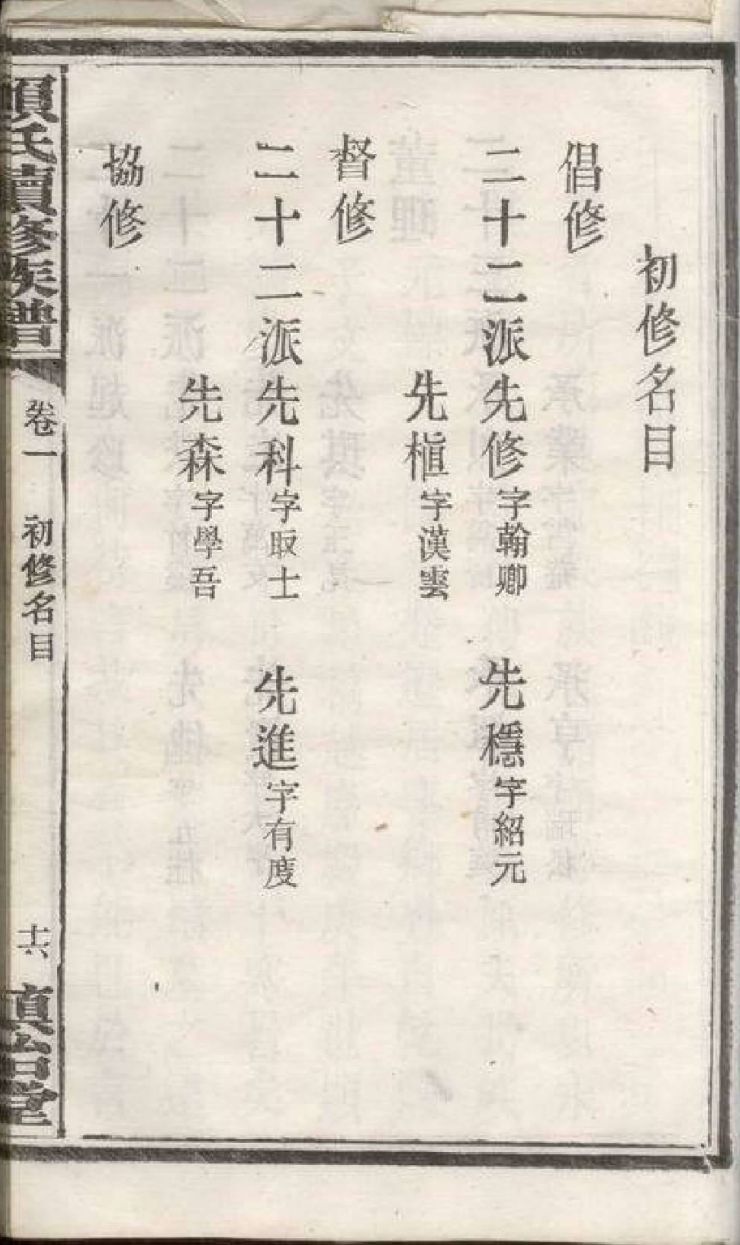 初修名目
倡修
二十二派先修字翰卿 先穩字紹元
先植字漢雲
督修
二十二派先科字取士 先進字有度
先森字學吾
協修
氏續修族譜
卷一
初修名目
十六
堂